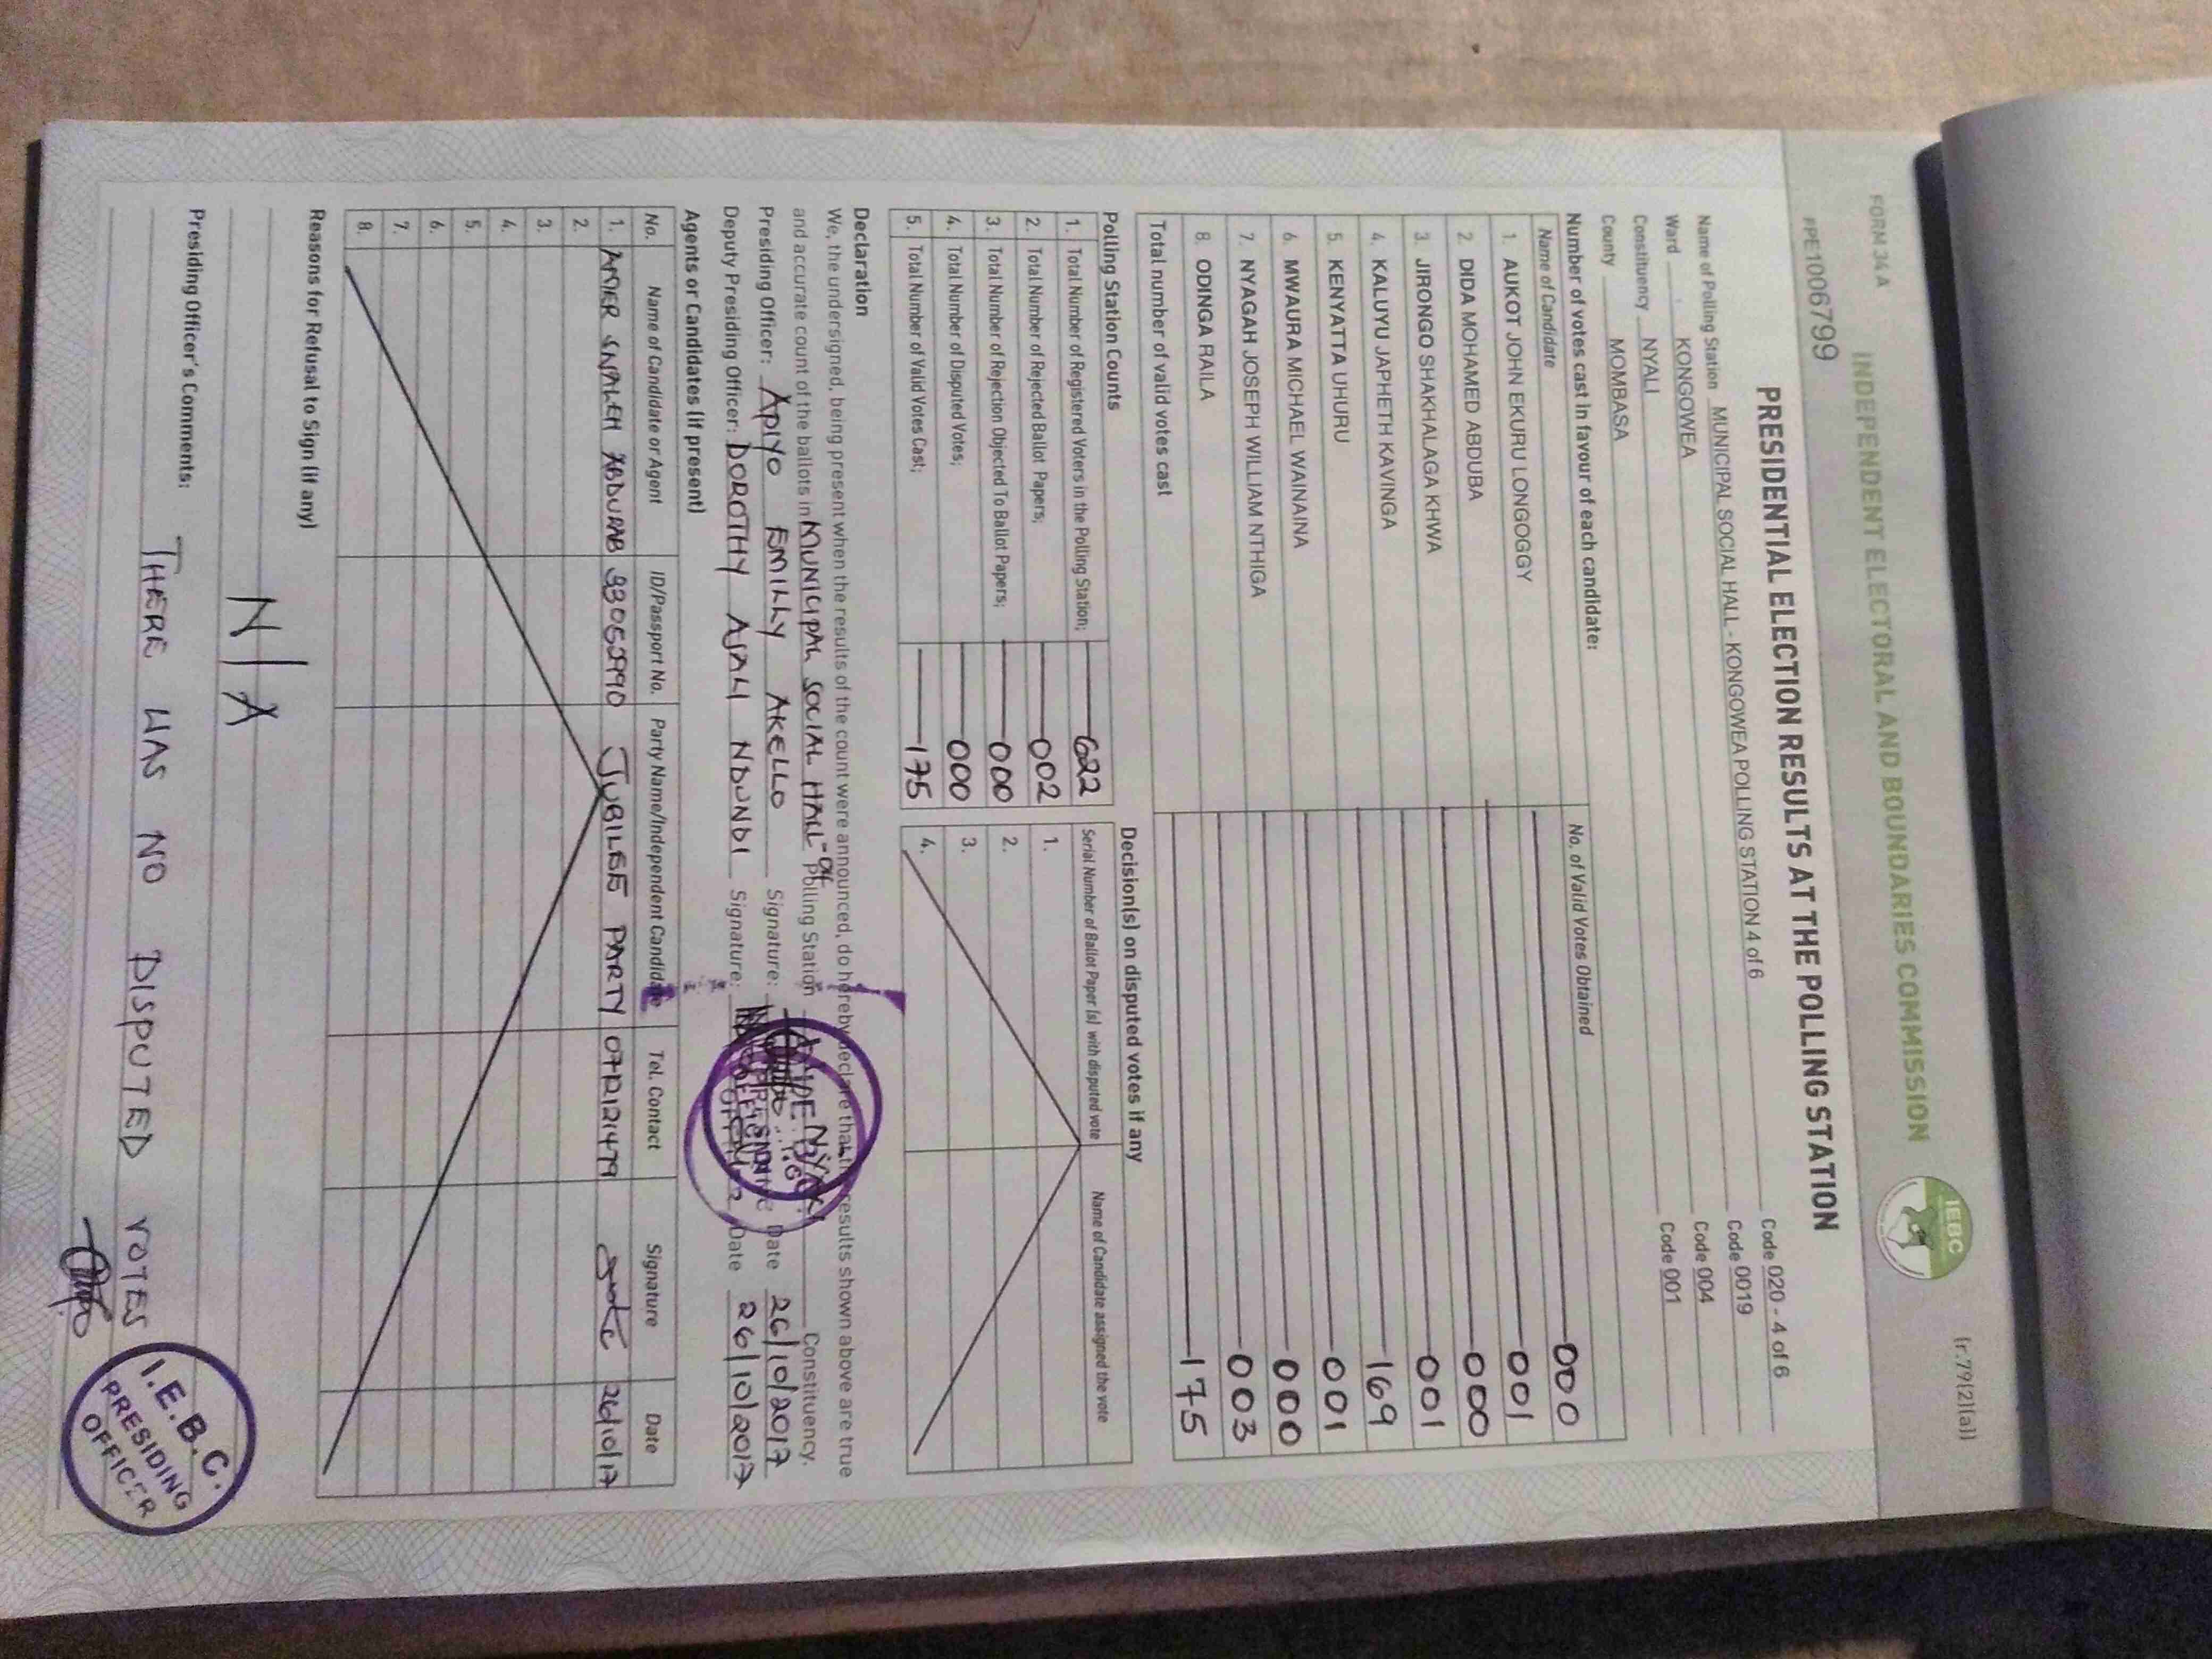 FORM 34A
(r.79(2)(a))
INDEPENDENT ELECTORAL AND BOUNDARIES COMMISSION
IEBC
PPE1006799
PRESIDENTIAL ELECTION RESULTS AT THE POLLING STATION
Name of Polling Station MUNICIPAL SOCIAL HALL - KONGOWEA POLLING STATION 4 of 6 Code 020 - 4 of 6
Ward KONGOWEA Code 0019
Constituency NYALI Code 004
County MOMBASA Code 001
Number of votes cast in favour of each candidate:
Name of Candidate No. of Valid Votes Obtained
1. AUKOT JOHN EKURU LONGOGGY 000
2. DIDA MOHAMED ABDUBA 001
3. JIRONGO SHAKHALAGA KHWA 000
4. KALUYU JAPHETH KAVINGA 001
5. KENYATTA UHURU 169
6. MWAURA MICHAEL WAINAINA 001
7. NYAGAH JOSEPH WILLIAM NTHIGA 000
8. ODINGA RAILA 003
Total number of valid votes cast 175
Polling Station Counts
1. Total Number of Registered Voters in the Polling Station; 622
2. Total Number of Rejected Ballot Papers; 002
3. Total Number of Rejection Objected To Ballot Papers; 000
4. Total Number of Disputed Votes; 000
5. Total Number of Valid Votes Cast; 175
Decision(s) on disputed votes if any
Serial Number of Ballot Paper (s) with disputed vote Name of Candidate assigned the vote
1.
2.
3.
4.
Declaration
We, the undersigned, being present when the results of the count were announced, do hereby declare that the results shown above are true
and accurate count of the ballots in MUNICIPAL SOCIAL HALL Polling Station Constituency.
Presiding Officer: APIYO EMILLY AKELLO Signature: Date 26/10/2017
Deputy Presiding Officer: DOROTHY AJALI NDUNDI Signature: Date 26/10/2017
Agents or Candidates (if present)
No. Name of Candidate or Agent ID/Passport No. Party Name/Independent Candidate Tel. Contact Signature Date
1. JUBILEE PARTY 26/10/17
2.
3.
4.
5.
6.
7.
8.
Reasons for Refusal to Sign (if any)
N/A
Presiding Officer's Comments:
THERE WAS NO DISPUTED VOTES
I.E.B.C.
PRESIDING
OFFICER